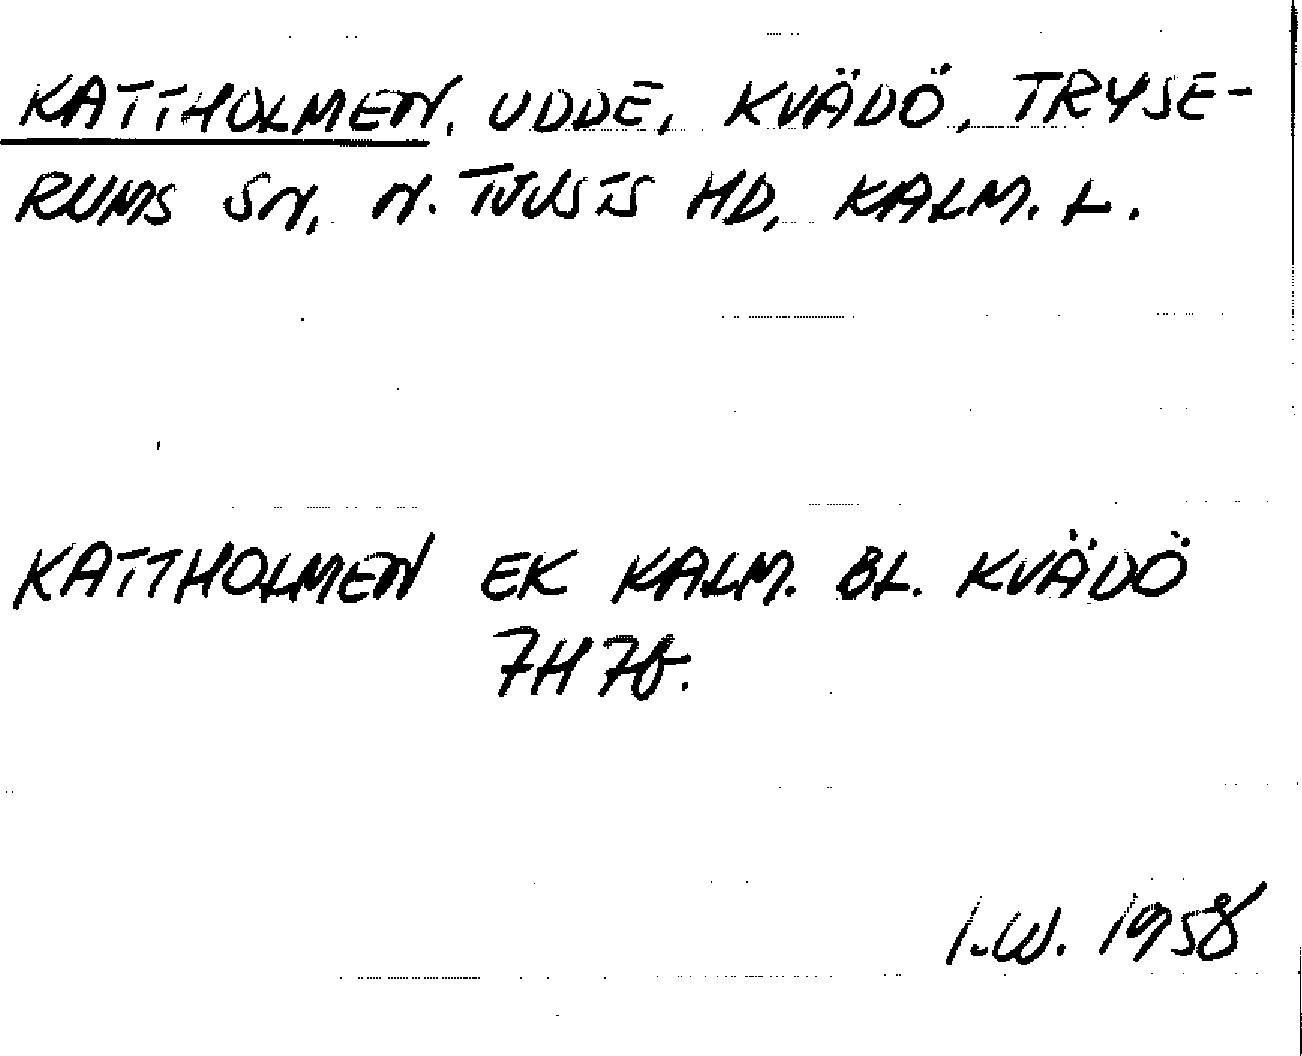 KATTHOLMEN, UDDE, KVÄDÖ, TRYSE-
RUMS SN, N. TJUSTS HD, KALM. L.
KATTHOLMEN EK KALM. BL. KVÄDÖ
7H 7b.
I.W. 1958